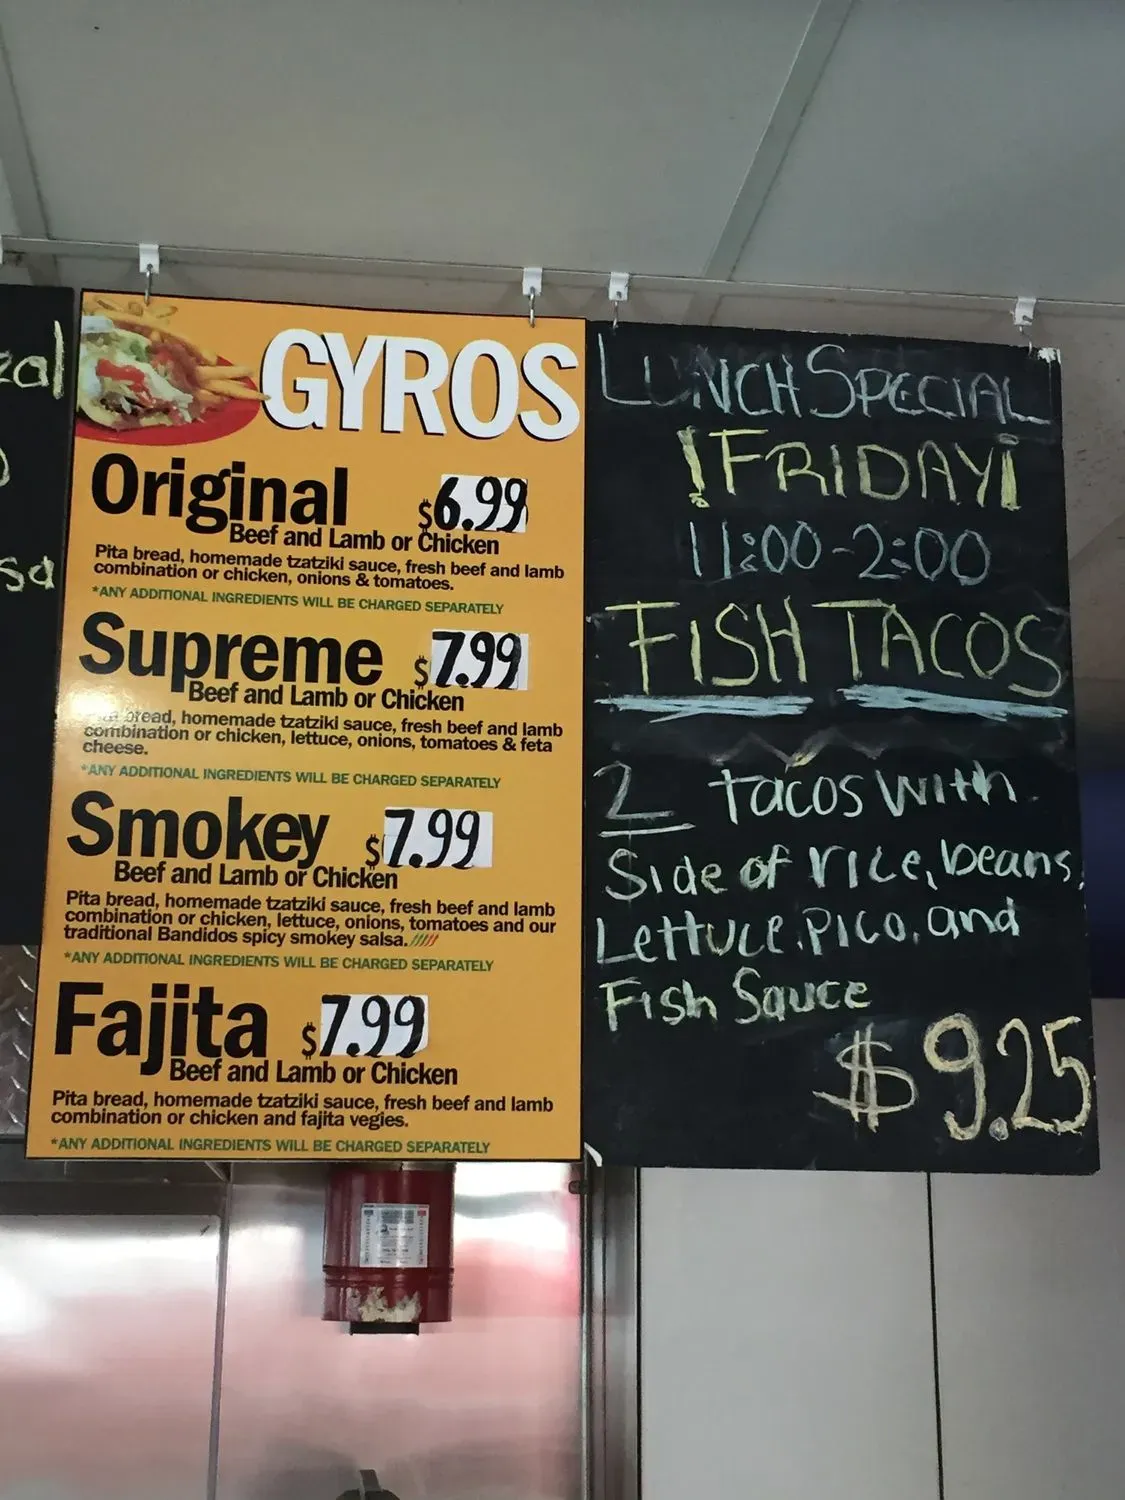 zal
sa
GYROS
Original $6.99
Beef and Lamb or Chicken
Pita bread, homemade tzatziki sauce, fresh beef and lamb
combination or chicken, onions & tomatoes.
*ANY ADDITIONAL INGREDIENTS WILL BE CHARGED SEPARATELY
Supreme $7.99
Beef and Lamb or Chicken
Pita bread, homemade tzatziki sauce, fresh beef and lamb
combination or chicken, lettuce, onions, tomatoes & feta
cheese.
*ANY ADDITIONAL INGREDIENTS WILL BE CHARGED SEPARATELY
Smokey $7.99
Beef and Lamb or Chicken
Pita bread, homemade tzatziki sauce, fresh beef and lamb
combination or chicken, lettuce, onions, tomatoes and our
traditional Bandidos spicy smokey salsa.
*ANY ADDITIONAL INGREDIENTS WILL BE CHARGED SEPARATELY
Fajita $7.99
Beef and Lamb or Chicken
Pita bread, homemade tzatziki sauce, fresh beef and lamb
combination or chicken and fajita vegies.
*ANY ADDITIONAL INGREDIENTS WILL BE CHARGED SEPARATELY
LUNCH SPECIAL
!FRIDAY¡
11:00-2:00
FISH TACOS
2 tacos with
Side of rice, beans,
Lettuce, Pico, and
Fish Sauce
$9.25